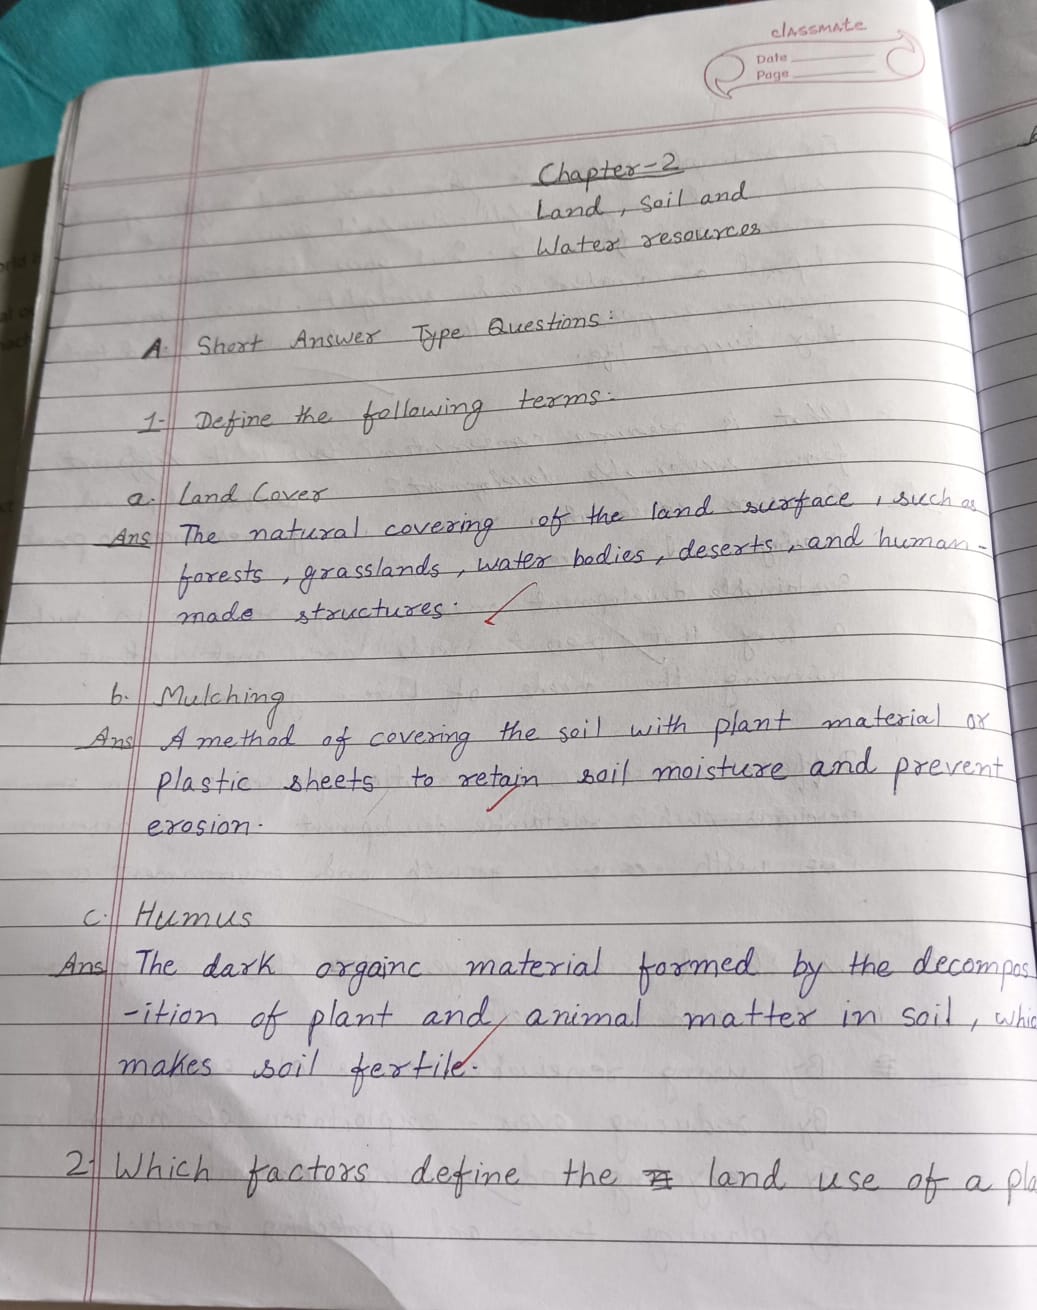 classmate
Date
Page
Chapter-2
Land, Soil and
Water resources
A. Short Answer Type Questions:
1- Define the following terms:
a. Land Cover
Ans The natural covering of the land surface, such as
forests, grasslands, water bodies, deserts, and human-
made structures.
b. Mulching
Ans A method of covering the soil with plant material or
plastic sheets to retain soil moisture and prevent
erosion.
c. Humus
Ans The dark orgainc material formed by the decompos
-ition of plant and animal matter in soil, whic
makes soil fertile.
2- Which factors define the land use of a pla